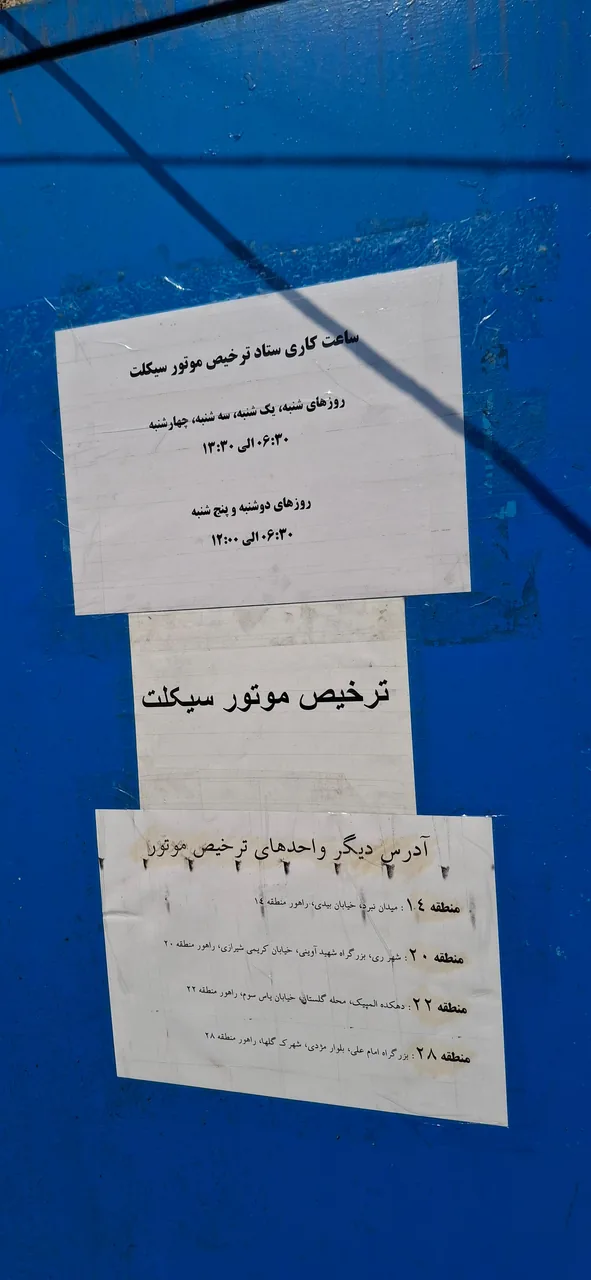 ساعت کاری ستاد ترخیص موتور سیکلت
روزهای شنبه، یک شنبه، سه شنبه، چهارشنبه
۰۶:۳۰ الی ۱۳:۳۰
روزهای دوشنبه و پنج شنبه
۰۶:۳۰ الی ۱۲:۰۰
ترخیص موتور سیکلت
آدرس دیگر واحدهای ترخیص موتور
منطقه ۱۴ : میدان نبرد، خیابان بیدی، راهور منطقه ۱۴
منطقه ۲۰ : شهر ری، بزرگراه شهید آوینی، خیابان کریمی شیرازی، راهور منطقه ۲۰
منطقه ۲۲ : دهکده المپیک، محله گلستان، خیابان یاس سوم، راهور منطقه ۲۲
منطقه ۲۸ : بزرگراه امام علی، بلوار مژدی، شهرک گلها، راهور منطقه ۲۸